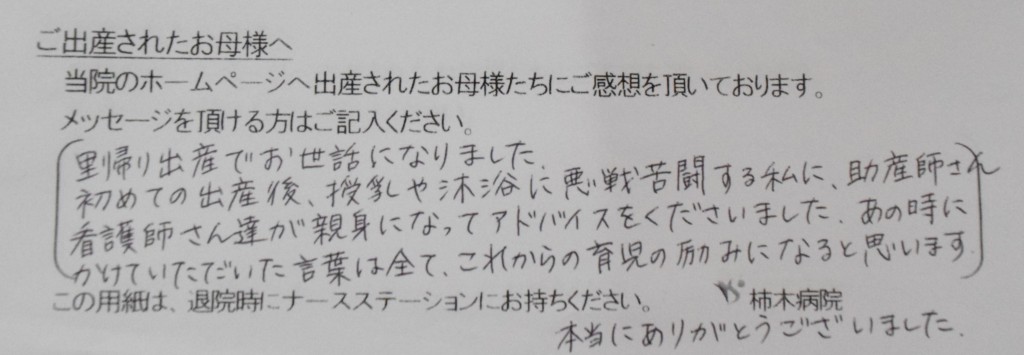 ご出産されたお母様へ
当院のホームページへ出産されたお母様たちにご感想を頂いております。
メッセージを頂ける方はご記入ください。
里帰り出産でお世話になりました.
初めての出産後、授乳や沐浴に悪戦苦闘する私に、助産師さん
看護師さん達が親身になってアドバイスをくださいました. あの時に
かけていただいた言葉は全て、これからの育児の励みになると思います.
この用紙は、退院時にナースステーションにお持ちください。 柿木病院
本当にありがとうございました.